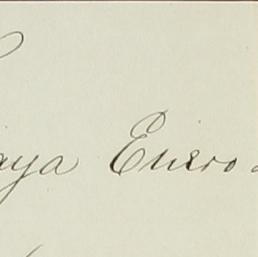 aya Enero